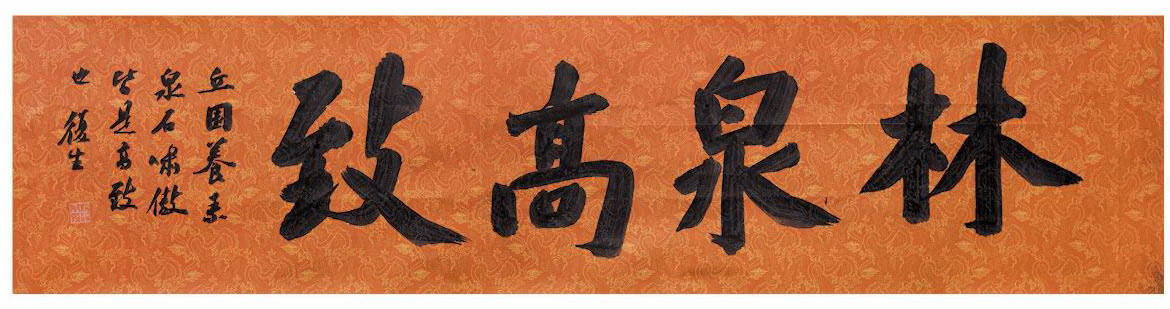 林泉高致
丘園養素
泉石嘯傲
皆是高致
也 復生